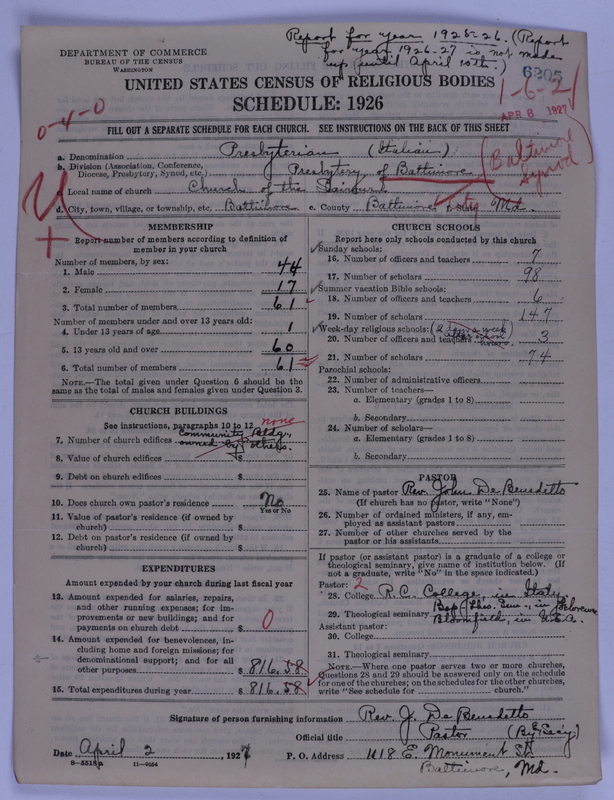 Report for year 1925-26. (Report
for year 1926-27 is not made
up until April 10th.)
DEPARTMENT OF COMMERCE
BUREAU OF THE CENSUS
WASHINGTON
6205
1-6-21
APR 6 1927
UNITED STATES CENSUS OF RELIGIOUS BODIES
SCHEDULE: 1926
0-4-0
FILL OUT A SEPARATE SCHEDULE FOR EACH CHURCH. SEE INSTRUCTIONS ON THE BACK OF THIS SHEET
a. Denomination Presbyterian (Italian)
b. Division (Association, Conference, Diocese, Presbytery, Synod, etc.) Presbytery of Baltimore
(Baltimore Synod)
c. Local name of church Church of the Saviour
d. City, town, village, or township, etc. Baltimore e. County Baltimore City Md.
MEMBERSHIP
Report number of members according to definition of
member in your church
Number of members, by sex:
1. Male 44
2. Female 17
3. Total number of members 61
Number of members under and over 13 years old:
4. Under 13 years of age 1
5. 13 years old and over 60
6. Total number of members 61
NOTE.—The total given under Question 6 should be the
same as the total of males and females given under Question 3.
CHURCH BUILDINGS
See instructions, paragraphs 10 to 12 none
7. Number of church edifices Community Bldg., owned by others.
8. Value of church edifices $
9. Debt on church edifices $
10. Does church own pastor's residence No
Yes or No
11. Value of pastor's residence (if owned by
church) $
12. Debt on pastor's residence (if owned by
church) $
EXPENDITURES
Amount expended by your church during last fiscal year
13. Amount expended for salaries, repairs,
and other running expenses; for im-
provements or new buildings; and for
payments on church debt $ 0
14. Amount expended for benevolences, in-
cluding home and foreign missions; for
denominational support; and for all
other purposes $ 816.58
15. Total expenditures during year $ 816.58
CHURCH SCHOOLS
Report here only schools conducted by this church
Sunday schools:
16. Number of officers and teachers 7
17. Number of scholars 98
Summer vacation Bible schools:
18. Number of officers and teachers 6
19. Number of scholars 147
Week-day religious schools: (2 days a week)
after school hours.
20. Number of officers and teachers 3
21. Number of scholars 74
Parochial schools:
22. Number of administrative officers
23. Number of teachers—
a. Elementary (grades 1 to 8)
b. Secondary
24. Number of scholars—
a. Elementary (grades 1 to 8)
b. Secondary
PASTOR
25. Name of pastor Rev. John De Benedetto
(If church has no pastor, write "None")
26. Number of ordained ministers, if any, em-
ployed as assistant pastors
27. Number of other churches served by the
pastor or his assistants
If pastor (or assistant pastor) is a graduate of a college or
theological seminary, give name of institution below. (If
not a graduate, write "No" in the space indicated.)
Pastor: 2
28. College R.C. College, in Italy
Bap. Theo. Sem., in Florence
29. Theological seminary Bloomfield, in U.S.A.
Assistant pastor:
30. College
31. Theological seminary
NOTE.—Where one pastor serves two or more churches,
Questions 28 and 29 should be answered only on the schedule
for one of the churches; on the schedules for the other churches,
write "See schedule for church."
Signature of person furnishing information Rev. J. De Benedetto
Official title Pastor (By Sec'y.)
Date April 2, 1927 P. O. Address 1118 E. Monument St.
8-5518 11-9054
Baltimore, Md.